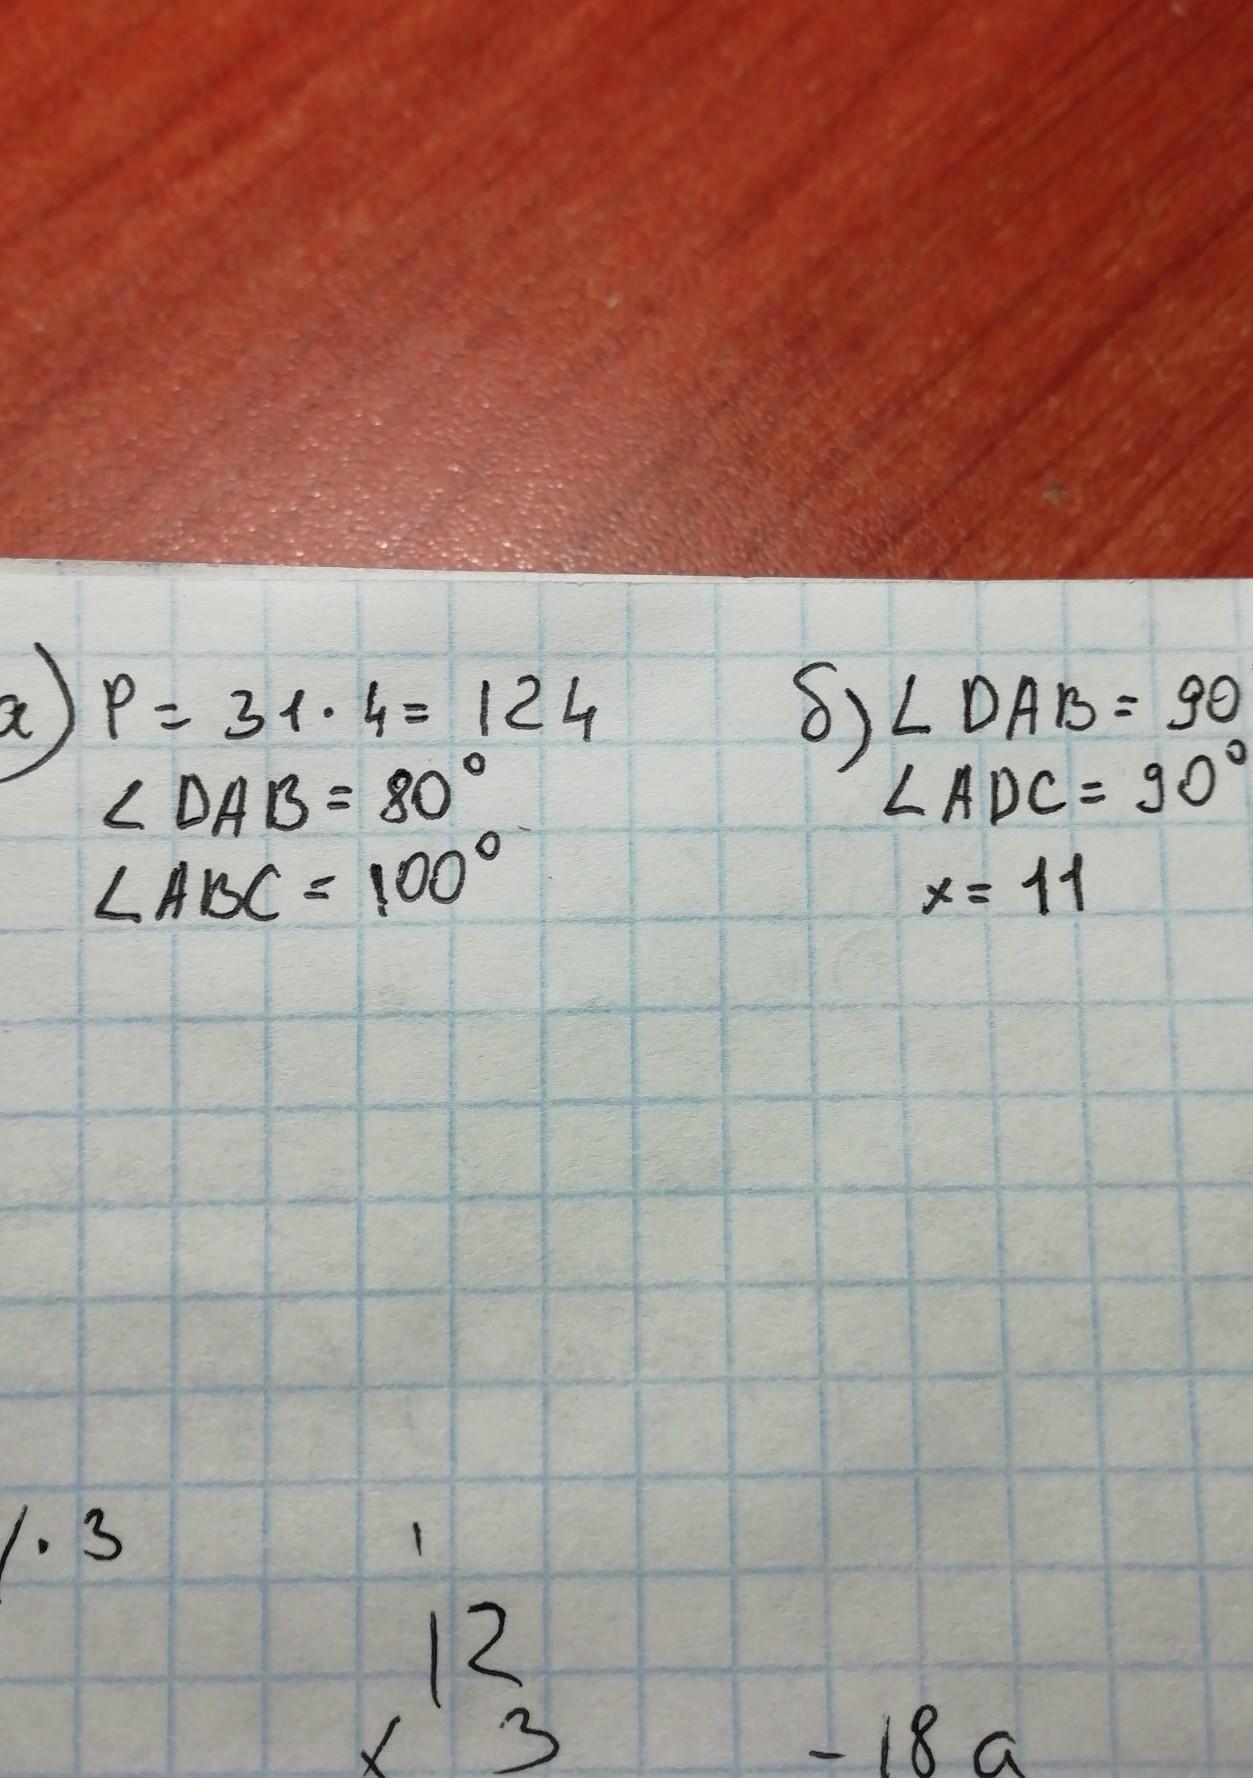 а) P = 31 · 4 = 124
∠DAB = 80°
∠ABC = 100°
б) ∠DAB = 90
∠ADC = 90°
x = 11
/ · 3
12
x 3
- 18 a